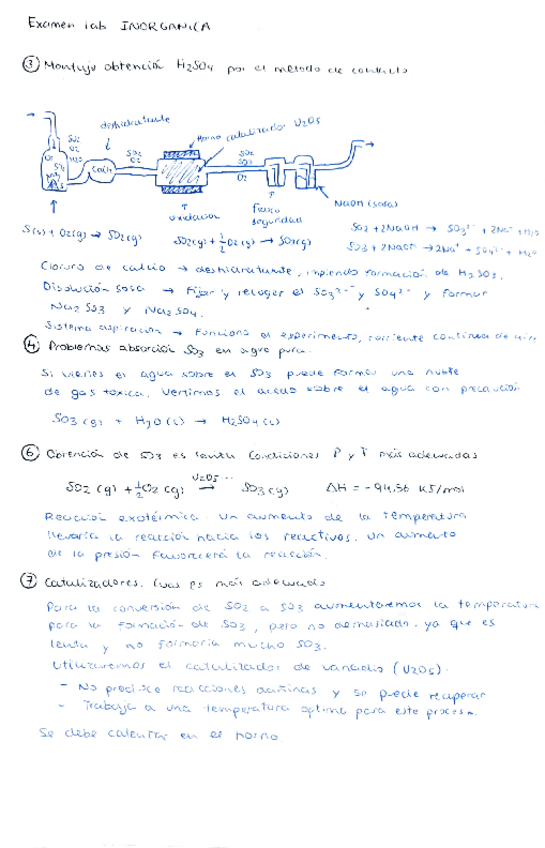 Examen lab INORGANICA
③ Montaje obtención H₂SO₄ por el método de contacto
deshidratante
Horno catalizador V₂O₅
SO₂
O₂
H₂O
CaCl₂
SO₂
O₂
SO₂
SO₃
O₂
NaOH (sosa)
↑ oxidación
↑ frasco seguridad
S(s) + O₂(g) → SO₂(g)
SO₂(g) + ½O₂(g) → SO₃(g)
SO₂ + 2NaOH → SO₃²⁻ + 2Na⁺ + H₂O
SO₃ + 2NaOH → 2Na⁺ + SO₄²⁻ + H₂O
Cloruro de calcio → deshidratante, impiendo formación de H₂SO₃.
Disolución sosa → Fijar y recoger el SO₃²⁻ y SO₄²⁻ y formar
Na₂SO₃ y Na₂SO₄.
Sistema aspiración → Funcione el experimento, corriente continua de aire
④ Problemas absorción SO₃ en agua pura.
Si vienes el agua sobre el SO₃ puede formar una nube
de gas toxica. Vertimos el acido sobre el agua con precaución
SO₃(g) + H₂O(l) → H₂SO₄(l)
⑥ Obtención de SO₃ es lenta Condiciones P y T más adecuadas
SO₂(g) + ½O₂(g) → V₂O₅ SO₃(g) ΔH = -94,56 KJ/mol
Reacción exotérmica. un aumento de la temperatura
llevaria la reacción hacia los reactivos. un aumento
de la presión favorecerá la reacción.
⑦ Catalizadores. Cuas es más adecuado
Para la conversión de SO₂ a SO₃ aumentaremos la temperatura
para la formación de SO₃, pero no demasiado, ya que es
lenta y no formaria mucho SO₃.
Utilizaremos el catalizador de vanadio (V₂O₅).
- No produce reacciones dañinas y se puede recuperar
- Trabaja a una temperatura optima para este proceso.
Se debe calentar en el horno.